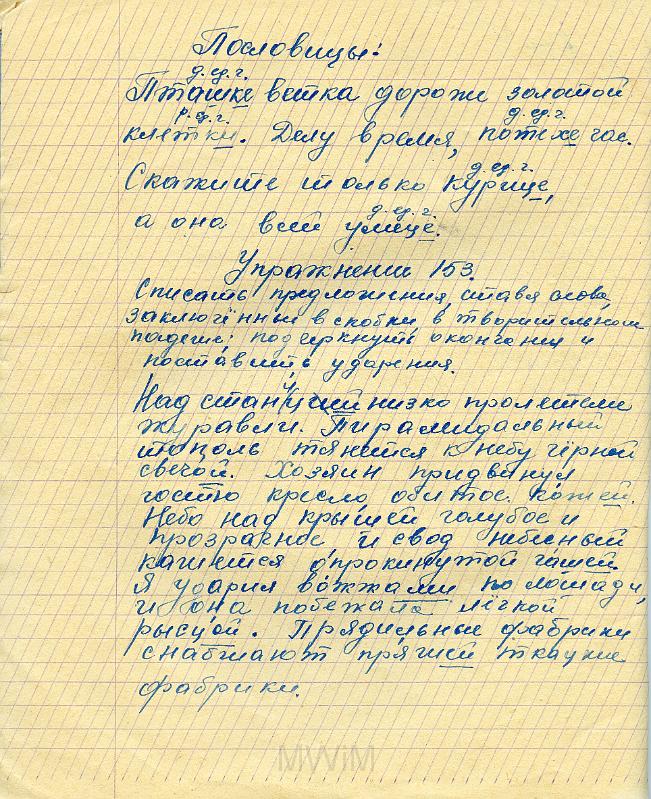 Пословицы:
д. ед. ч.
Пташке ветка дороже золотой
р. ед. ч. д. ед. ч.
клетки. Делу время, потехе час.
д. ед. ч.
Скажите только курице,
д. ед. ч.
а она всей улице.
Упражнение 153.
Списать предложения, ставя слова,
заключённые в скобки, в творительном
падеже; подчеркнуть окончания и
поставить ударения.
Над станицей низко пролетели
журавли. Пирамидальный
тополь тянется к небу чёрной
свечой. Хозяин придвинул
гостю кресло обитое кожей.
Небо над крышей голубое и
прозрачное и свод небесный
кажется опрокинутой чашей.
Я ударил вожжами по лошади,
и она побежала лёгкой
рысцой. Прядильные фабрики
снабжают пряжей ткацкие
фабрики.
MWiM